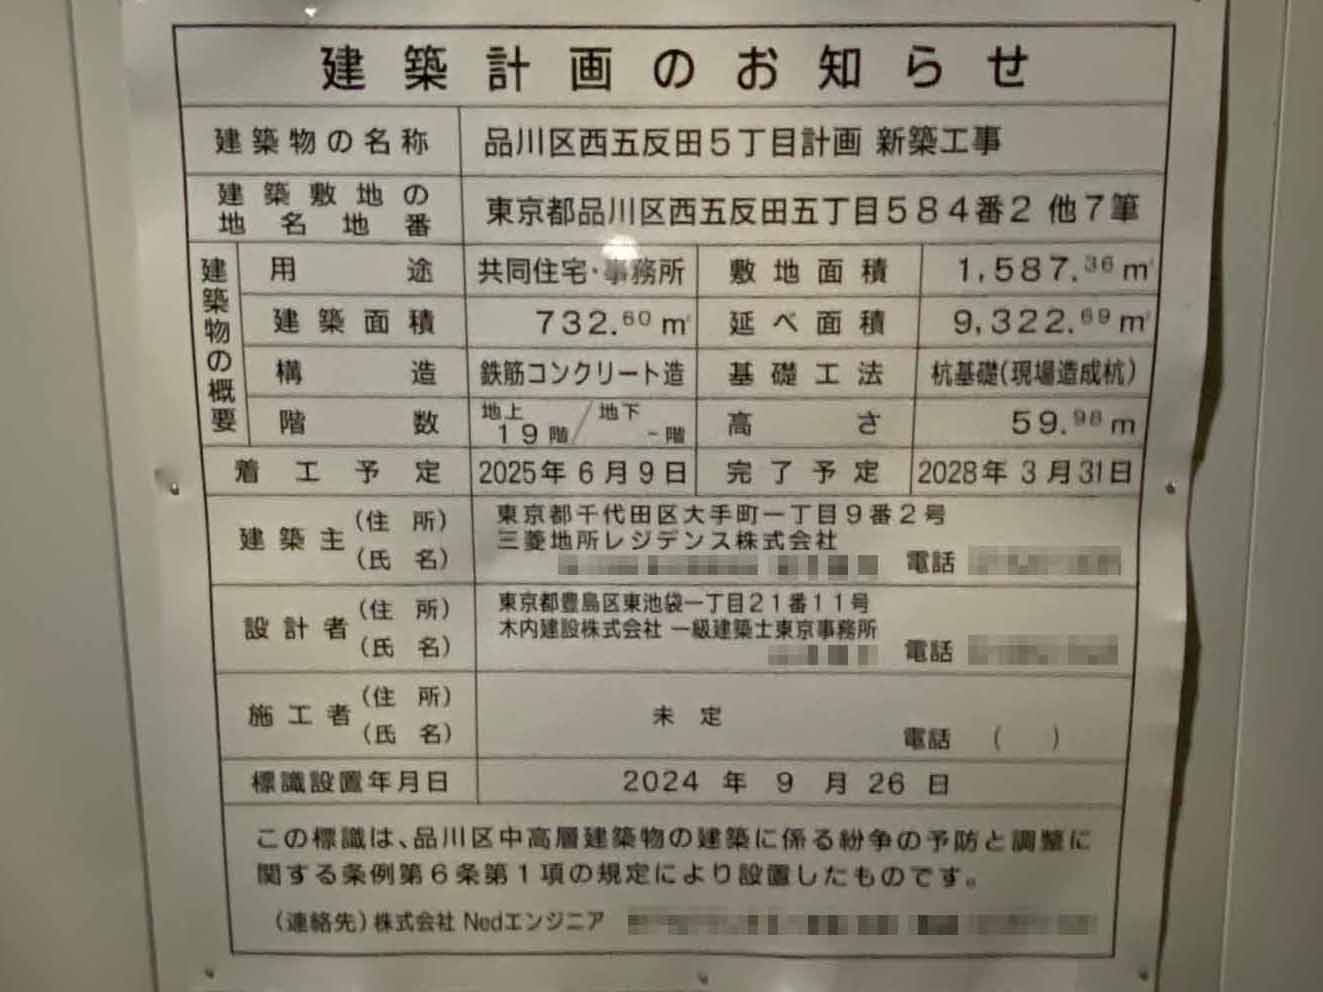 建築計画のお知らせ
建築物の名称 品川区西五反田5丁目計画 新築工事
建築敷地の
地名地番 東京都品川区西五反田五丁目584番2 他7筆
建築物の概要
用途 共同住宅・事務所 敷地面積 1,587.36㎡
建築面積 732.60㎡ 延べ面積 9,322.69㎡
構造 鉄筋コンクリート造 基礎工法 杭基礎(現場造成杭)
階数 地上19階/地下-階 高さ 59.98m
着工予定 2025年6月9日 完了予定 2028年3月31日
建築主 (住所) 東京都千代田区大手町一丁目9番2号
(氏名) 三菱地所レジデンス株式会社
電話
設計者 (住所) 東京都豊島区東池袋一丁目21番11号
(氏名) 木内建設株式会社 一級建築士東京事務所
電話
施工者 (住所)
(氏名) 未定
電話 ( )
標識設置年月日 2024年9月26日
この標識は、品川区中高層建築物の建築に係る紛争の予防と調整に
関する条例第6条第1項の規定により設置したものです。
(連絡先)株式会社 Nedエンジニア